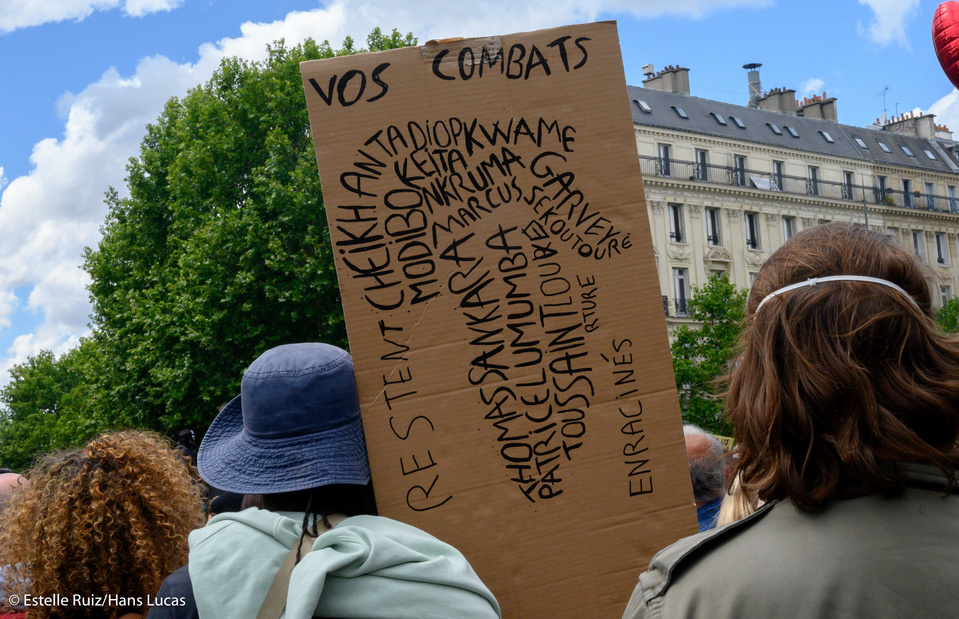 VOS COMBATS
CHEIKH ANTA DIOP KWAME
MODIBO KEITA
NKRUMA
MARCUS GARVEY
SEKOU TOURÉ
THOMAS SANKARA
PATRICE LUMUMBA
TOUSSAINT LOUVERTURE
RESTENT
ENRACINÉS
© Estelle Ruiz/Hans Lucas